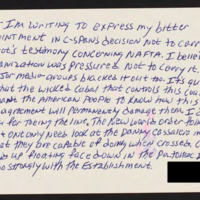 I'M WRITING TO EXPRESS MY BITTER
OINTMENT IN C-SPANS DECISION NOT TO CARR
OT'S TESTIMONY CONCERNING NAFTA. I BELIE
WAS PRESSURED NOT TO CARRY IT.
MAJOR GROUPS BLACKED IT OUT TOO. ITS
THAT THE WICKED CABAL THAT CONTROLS THIS COU
THE AMERICAN PEOPLE TO KNOW HOW THIS
AGREEMENT WILL PERMANENTLY DAMAGE THEM. I
FOR TOEING THE LINE. THE NEW WORLD ORDER
ONE ONLY NEED LOOK AT THE DANNY CASOLARO
AT THEY ARE CAPABLE OF DOING WHEN CROSSED.
UP FLOATING FACE DOWN IN THE POTOMAC
SO STRONGLY WITH THE ESTABLISHMENT.